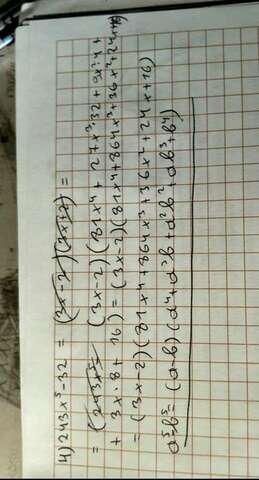 4) 243x⁵-32 = (3x-2)(2x32) =
= (243x⁵ (3x-2)(81x⁴ + 27x³·32 + 9x²·4 +
+ 3x·8 + 16) = (3x-2)(81x⁴+864x³+36x²+24x+16)
= (3x-2)(81x⁴+864x³+36x²+24x+16)
a⁵-b⁵= (a-b)(a⁴+a³b+a²b²+ab³+b⁴)